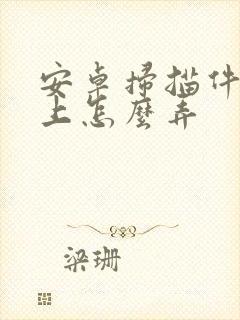 安卓掃描件
上怎麼弄
梁珊